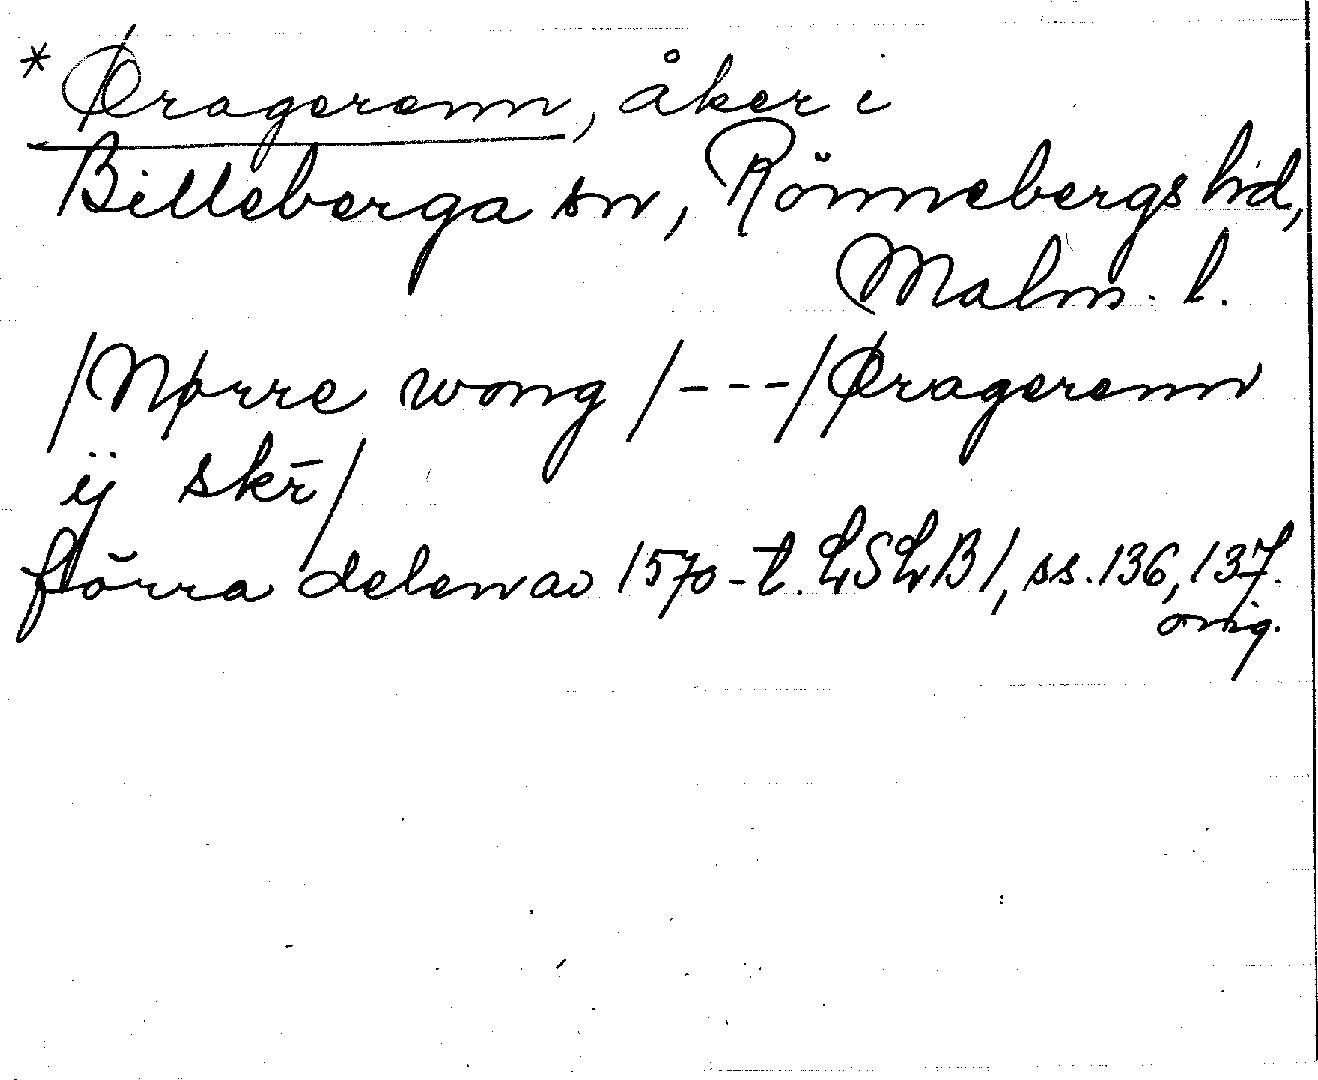 * Øragerenn, åker i
Billeberga sn, Rönnebergs hd,
Malm. l.
/Nørre wong/---/Øragerenn
ij skr̄/
förra delen av 1570-t. LSLB 1, ss. 136, 137.
orig.